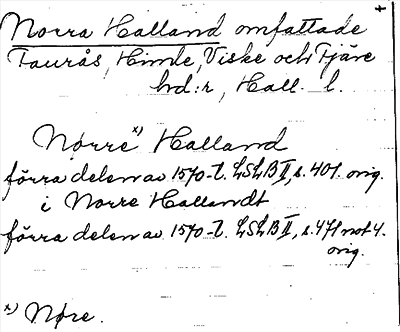 +
Norra Halland omfattade
Faurås, Himle, Viske och Fjäre
hd:r, Hall. l.
Nørre x) Halland
förra delen av 1570-t. LSLB II, s. 401. orig.
i Norre Hallandt
förra delen av 1570-t. LSLB II, s. 471 not 4.
orig.
x) Nøre.